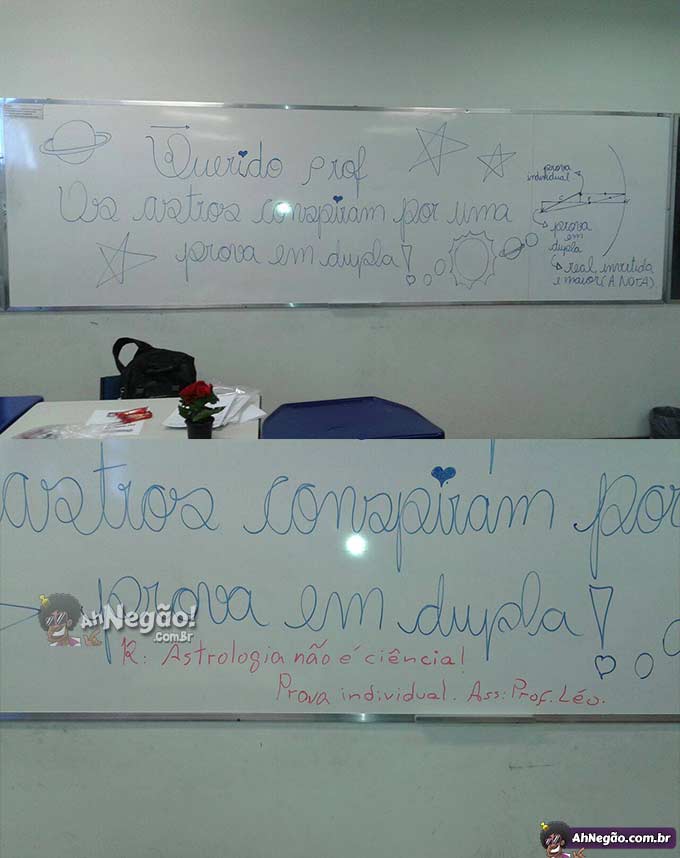 Querido prof
Os astros conspiram por uma
prova em dupla!
prova
individual
prova
em
dupla
real, invertida
e maior (A NOTA)
astros conspiram por
prova em dupla!
AhNegão!
.com.Br
R: Astrologia não é ciência!
Prova individual. Ass: Prof. Léo.
AhNegão.com.br